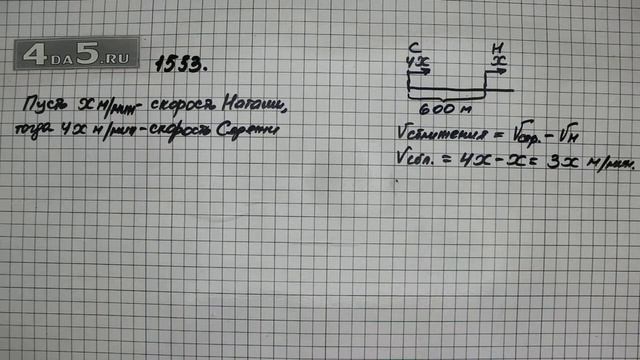 4DA5.RU
1553.
Пусть x м/мин - скорость Наташи,
тогда 4x м/мин - скорость Сережи
С Н
4x x
600 м
Vсближения = Vсер. - Vн
Vсбл. = 4x - x = 3x м/мин.